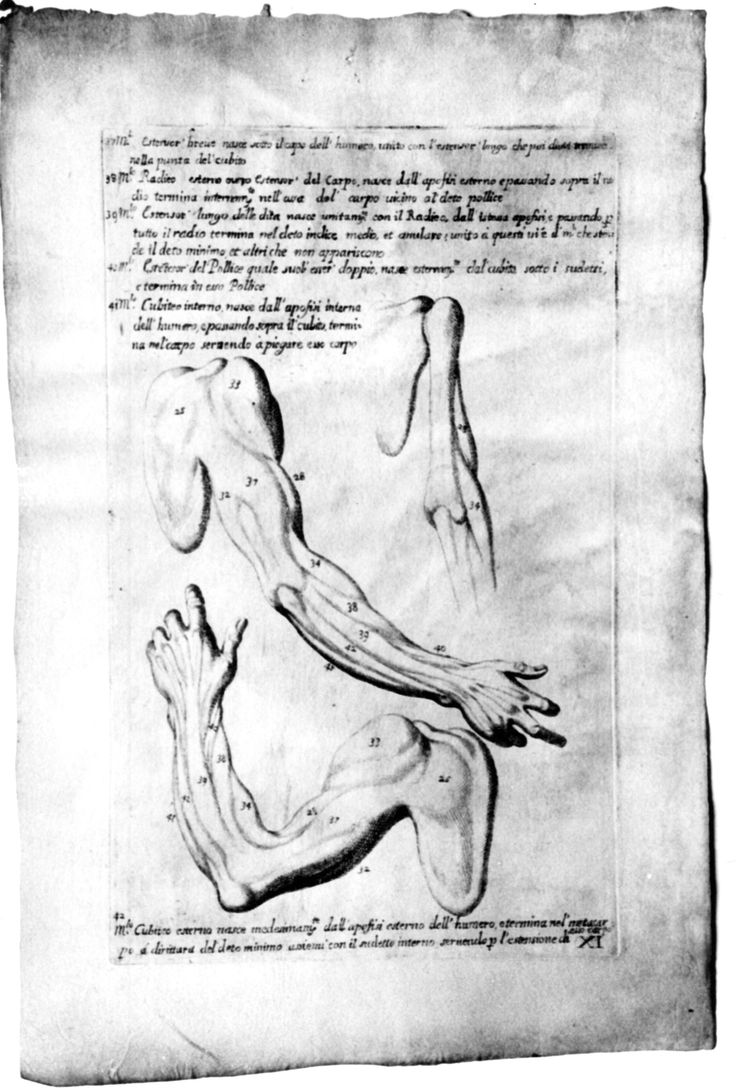 37 M.lo Estensor' breue nasce sotto il capo dell' humero, unito con l'estensor' lungo che poi
nella punta del cubito
38 M.lo Radieo esterno ouero Estensor' del Carpo, nasce dall' apofisi esterno e passando sopra il ra
dio termina nell' del carpo uicino al deto pollice
39 M.lo Estensor' lungo delle dita nasce unitam.te con il Radieo, dall' apofisi, e passando p
tutto il radio termina nel deto indice medio, et anulare, unito à questi ui è il m.lo che
de il deto minimo et altri che non appariscono
40 M.lo Estensor del Pollice quale suol' esser' doppio, nasce dal cubito sotto i sudetti,
e termina in esso Pollice
41 M.lo Cubiteo interno, nasce dall' apofisi interna
dell' humero, e passando sopra il cubito, termi-
na nel carpo seruendo à piegare esso carpo
25
33
37
32
28
34
38
39
42
40
41
28
34
33
25
38
39
42
41
34
28
37
32
42
M.lo Cubiteo esterno nasce medesimam.te dall' apofisi esterno dell' humero, e termina nel metacar
po à dirittura del deto minimo assiemi con il sudetto interno seruendo p l'estensione di esso carpo
IX